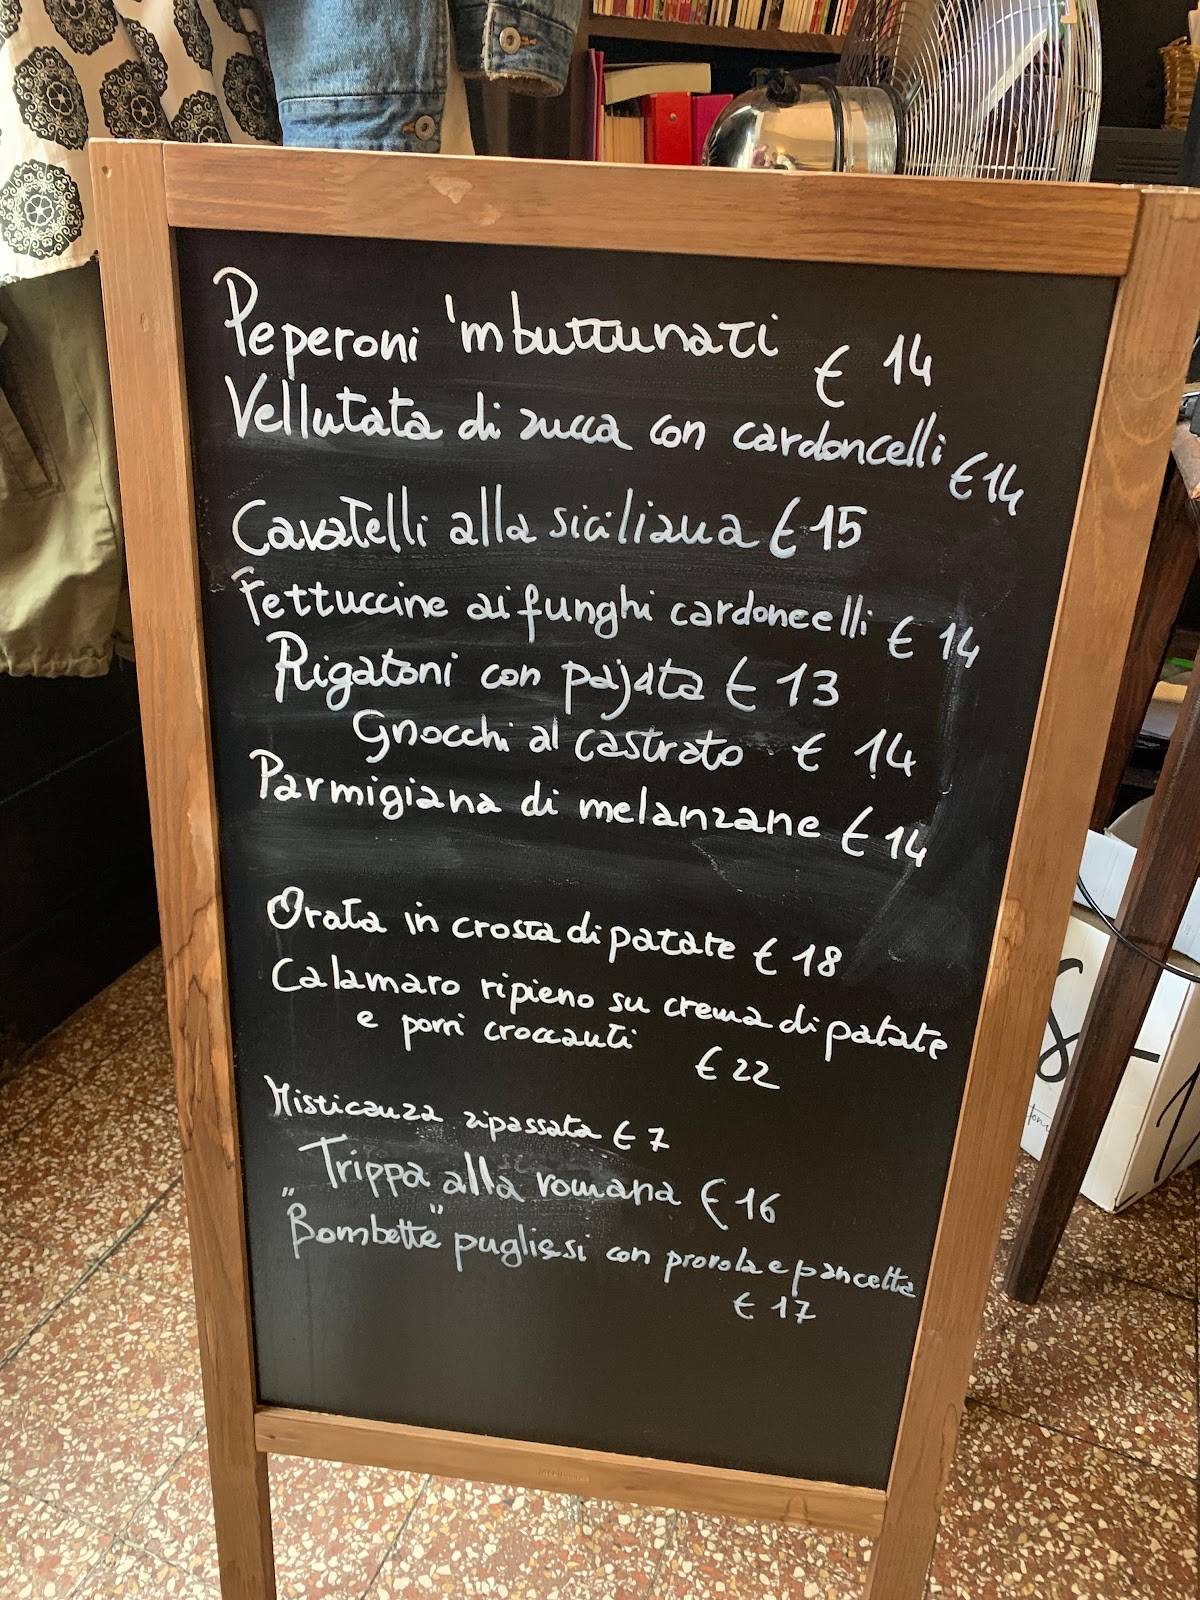 Peperoni 'mbuttunati € 14
Vellutata di zucca con cardoncelli € 14
Cavatelli alla siciliana € 15
Fettuccine ai funghi cardoncelli € 14
Rigatoni con pajata € 13
Gnocchi al castrato € 14
Parmigiana di melanzane € 14
Orata in crosta di patate € 18
Calamaro ripieno su crema di patate
e porri croccanti € 22
Misticanza ripassata € 7
Trippa alla romana € 16
"Bombette" pugliesi con provola e pancetta
€ 17